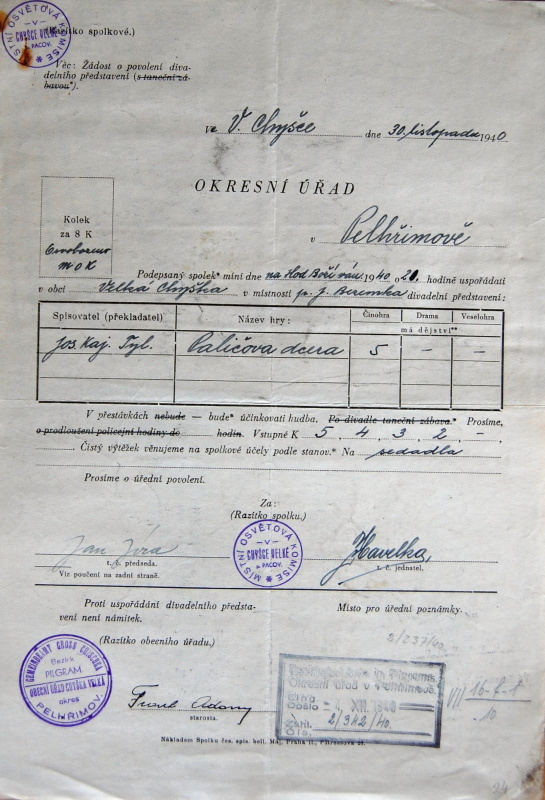 MÍSTNÍ OSVĚTOVÁ KOMISE
- V -
CHYŠCE VELKÉ
p. PACOV.
(Razítko spolkové.)
Věc: Žádost o povolení diva-
delního představení (s taneční zá-
bavou*).
Ve V. Chyšce dne 30. listopadu 1940
OKRESNÍ ÚŘAD
v Pelhřimově
Kolek
za 8 K
Podepsaný spolek* míní dne na Hod Boží ván. 1940 o 20. hodině uspořádati
v obci Velká Chyška v místnosti p. J. Beremka divadelní představení:
Spisovatel (překladatel) Název hry: Činohra Drama Veselohra
má dějství**
Jos. Kaj. Tyl. Paličova dcera 5 – –
V přestávkách nebude — bude* účinkovati hudba. Po divadle taneční zábava.* Prosíme,
o prodloužení policejní hodiny do hodin. Vstupné K 5, 4, 3, 2, –
Čistý výtěžek věnujeme na spolkové účely podle stanov.* Na sedadla
Prosíme o úřední povolení.
Za:
(Razítko spolku.)
MÍSTNÍ OSVĚTOVÁ KOMISE
- V -
CHYŠCE VELKÉ
p. PACOV.
Jan Jíra
Havelka,
t. č. předseda.
t. č. jednatel.
Viz poučení na zadní straně.
Proti uspořádání divadelního představ-
ení není námitek.
Místo pro úřední poznámky.
(Razítko obecního úřadu.)
2/237/40.
GEMEINDEAMT GROSS CHISCHKA
Bezirk
PILGRAM.
OBECNÍ ÚŘAD CHYŠKA VELKÁ
okres
PELHŘIMOV.
Okresní úřad v Pelhřimově.
Došlo 4. XII. 1940
2/342/40.
Čís.
starosta.
Nákladem Spolku čes. spis. bell. Máj, Praha II.,
24